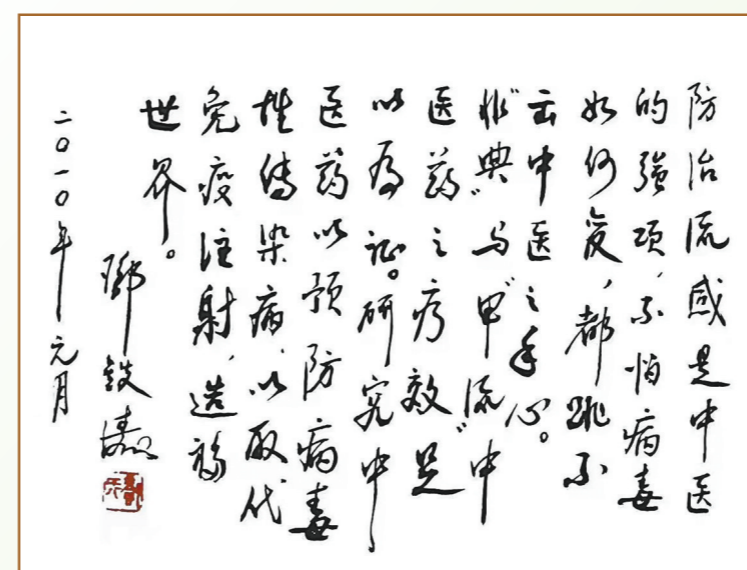 防治流感是中医
的强项，不怕病毒
如何变，都跳不
出中医之手心。
“非典”与“甲流”中
医药之疗效足
以为证。研究中
医药以预防病毒
性传染病，以取代
免疫注射，造福
世界。
鄧鉄濤
二〇一〇年元月